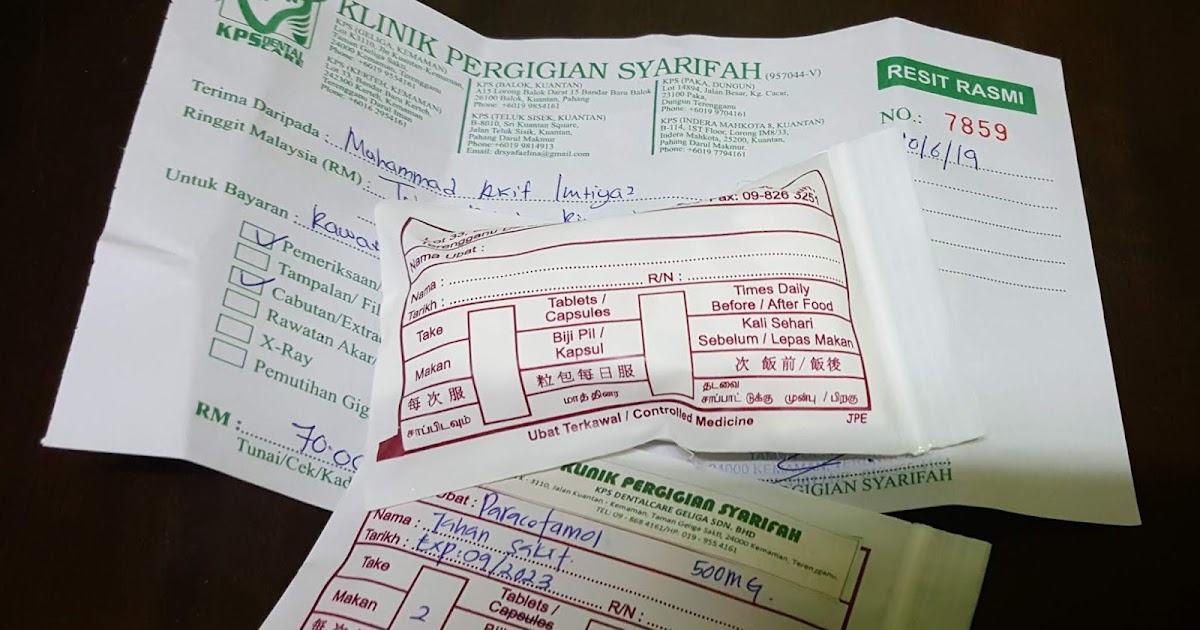 KPS DENTAL CARE
KLINIK PERGIGIAN SYARIFAH (957044-V)
KPS (GELIGA, KEMAMAN)
Lot K3110, Jln Kuantan-Kemaman,
Taman Geliga Sakti,
24000 Kemaman, Terengganu
Phone: +6019 9554161
KPS (KERTEH, KEMAMAN)
Lot 33, Bandar Baru Kerteh,
Phone: +6016 2954161
KPS (BALOK, KUANTAN)
A15 Lorong Balok Darat 15 Bandar Baru Balok
26100 Balok, Kuantan, Pahang
Phone: +6019 9854161
KPS (TELUK SISEK, KUANTAN)
B-8010, Sri Kuantan Square,
Jalan Teluk Sisik, Kuantan,
Pahang Darul Makmur
Phone:+6019 9814913
Email: drsyafazlna@gmail.com
KPS (PAKA, DUNGUN)
Lot 14894, Jalan Besar, Kg. Cacar,
23100 Paka,
Dungun Terengganu
Phone: +6019 9704161
KPS (INDERA MAHKOTA 8, KUANTAN)
B-114, 1ST Floor, Lorong IM8/33,
Indera Mahkota, 25200, Kuantan,
Pahang Darul Makmur.
Phone: +6019 7794161
RESIT RASMI
NO.: 7859
/6/19
Terima Daripada : Mohammad Akif Imtiyaz
Ringgit Malaysia (RM) :
Untuk Bayaran :
Pemeriksaan/
Tampalan/ Fil
Cabutan/Extra
Rawatan Akar/
X-Ray
Pemutihan Gig
RM : 70.00
Tunai/Cek/Kad
24000 KEMAMAN,
GIGIAN SYARIFAH
Fax: 09-826 3251
Lot 33,
Terengganu
Nama Ubat :
Nama :
Tarikh : R/N :
Take
Tablets /
Capsules
Times Daily
Before / After Food
Makan
Biji Pil /
Kapsul
Kali Sehari
Sebelum / Lepas Makan
每次服
粒包每日服
次 飯前/飯後
சாப்பிடவும்
மாத்திரை
தடவை
சாப்பாட்டுக்கு முன்பு / பிறகு
Ubat Terkawal / Controlled Medicine
JPE
KLINIK PERGIGIAN SYARIFAH
KPS DENTALCARE GELIGA SDN. BHD
3110, Jalan Kuantan - Kemaman, Taman Geliga Sakti, 24000 Kemaman, Terengganu.
TEL: 09 - 868 4161/HP: 019 - 955 4161
Ubat : Paracetamol 500mg.
Nama : Tahan sakit.
Tarikh : Exp: 09/2023 R/N :
Take
Makan
2
Tablets /
Capsules